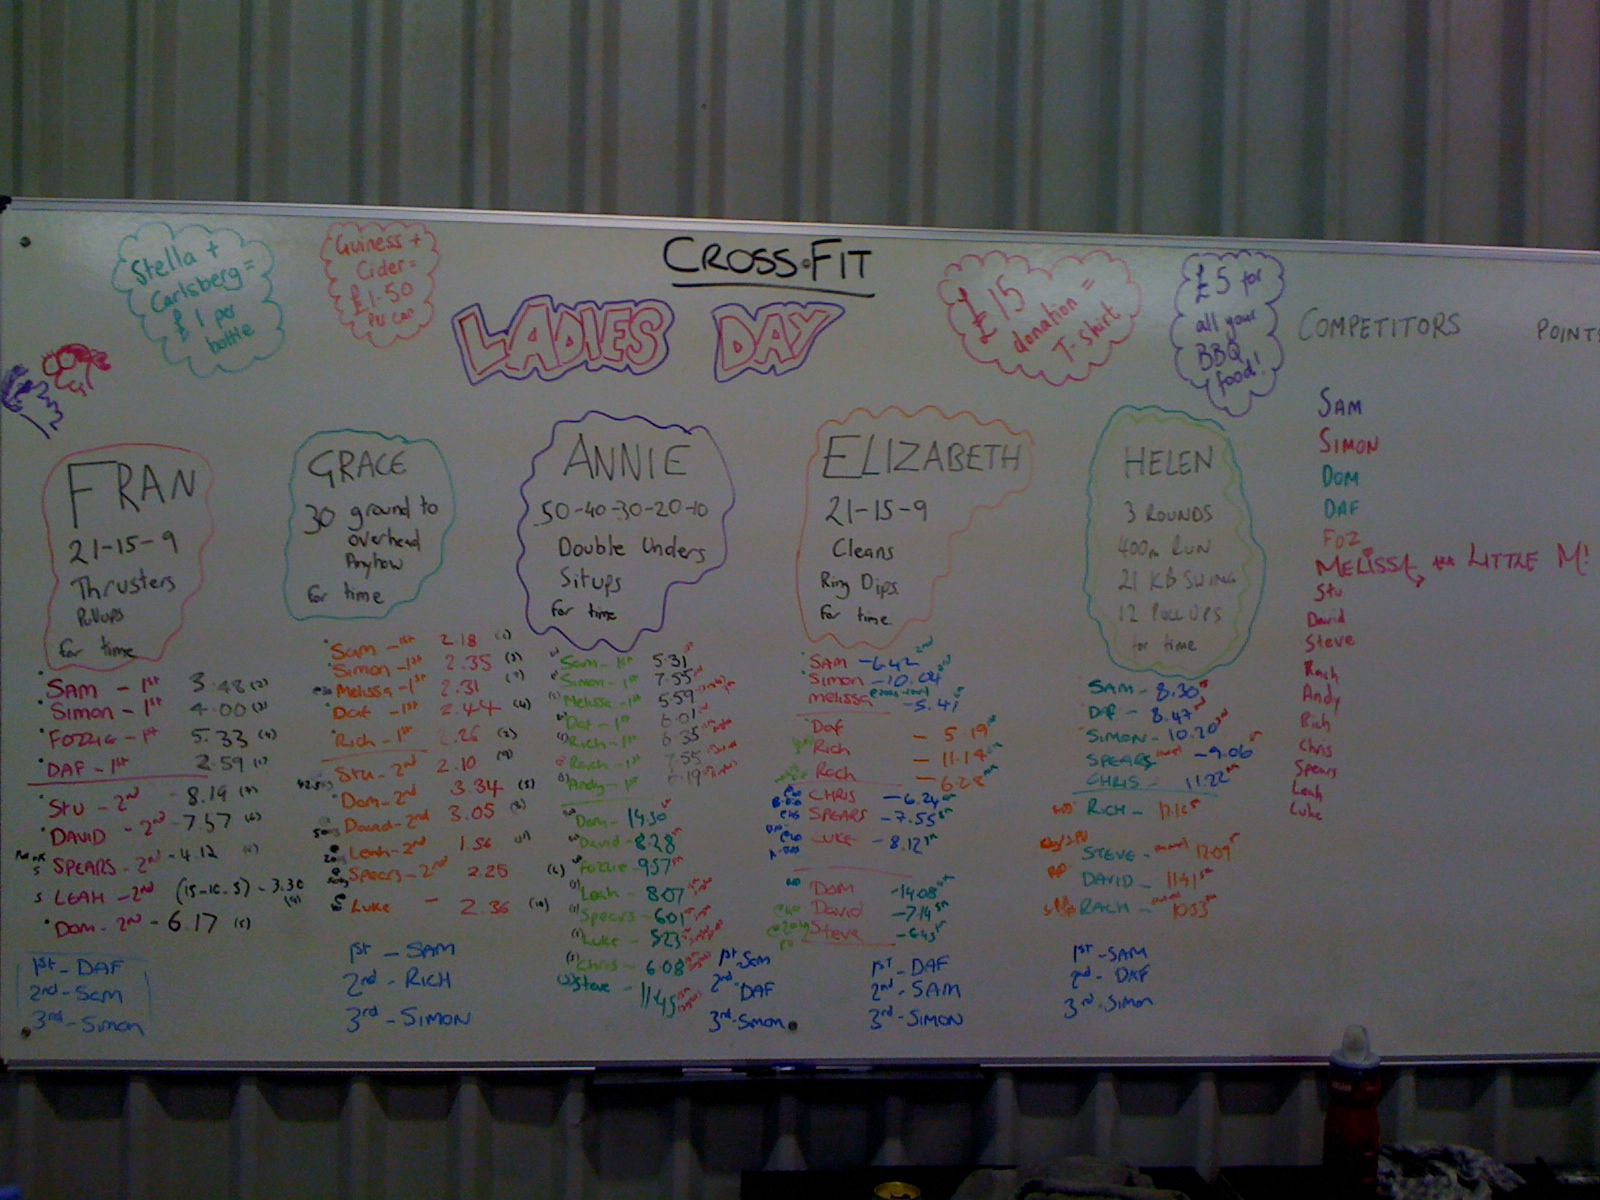 CROSS.FIT
LADIES DAY
Stella +
Carlsberg =
£1 per
bottle
Guiness +
Cider =
£1.50
Per can
£15
donation =
T-Shirt
£5 for
all your
BBQ
food!
COMPETITORS
POINTS
SAM
SIMON
DOM
DAF
FOZ
MELISSA LITTLE M!
Stu
David
Steve
Rach
Andy
Rich
Chris
Spears
Leah
Luke
FRAN
21-15-9
Thrusters
Pullups
for time
SAM - 1st 3.48 (2)
Simon - 1st 4.00 (3)
FOZZIE - 1st 5.33 (4)
DAF - 1st 2.59 (1)
STU - 2nd - 8.19
DAVID - 2nd - 7.57 (6)
SPEARS - 2nd - 4.12
LEAH - 2nd (15-10-5) - 3.30
Dom - 2nd - 6.17 (5)
1st - DAF
2nd - Sam
3rd - Simon
GRACE
30 ground to
overhead
Anyhow
for time
Sam - 1st 2.18 (1)
Simon - 1st 2.35 (3)
Melissa - 1st 2.31
Daf - 1st 2.44 (4)
Rich - 1st 2.26 (2)
Stu - 2nd 2.10
Dom - 2nd 3.34 (5)
David - 2nd 3.05
Leah - 2nd 1.56
Spears - 2nd 2.25
Luke - 2.36
1st - SAM
2nd - RICH
3rd - SIMON
ANNIE
50-40-30-20-10
Double Unders
Situps
for time
Sam - 1st 5.31
Simon - 1st 7.55
Melissa - 1st 5.59
Daf - 1st 6.01
Rich - 1st 6.35
Rach - 1st 7.55
Andy - 1st 6.19
Dom - 14.50
David - 8.28
Fozzie - 9.57
Leah - 8.07
Spears - 6.01
Luke - 5.23
Chris - 6.08
Steve - 11.45
1st - Sam
2nd - DAF
3rd - Simon
ELIZABETH
21-15-9
Cleans
Ring Dips
for time
SAM - 6.42 2nd
Simon - 10.04
melissa - 5.41
Daf - 5.19
Rich - 11.14
Rach - 6.28
CHRIS - 6.24
SPEARS - 7.55
LUKE - 8.12
Dom - 14.08
David - 7.14
Steve - 6.45
1st - DAF
2nd - SAM
3rd - SIMON
HELEN
3 ROUNDS
400m RUN
21 KB SWING
12 PULL UPS
for time
SAM - 8.30
DAF - 8.47
SIMON - 10.20
SPEARS - 9.06
CHRIS - 11.22
RICH - 12.16
STEVE - 12.09
DAVID - 11.41
RACH - 10.53
1st - SAM
2nd - DAF
3rd - Simon